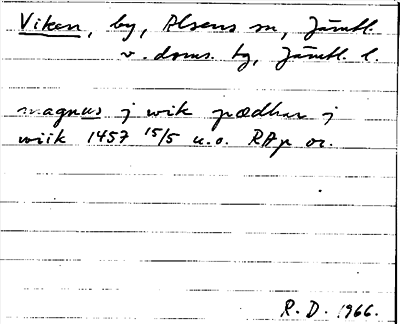 Viken, by, Alsens sn, Jämtl.
v. doms. by, Jämtl. l.
magnus j wik pædhar j
wiik 1457 15/5 u.o. RAp or.
R. D. 1966.